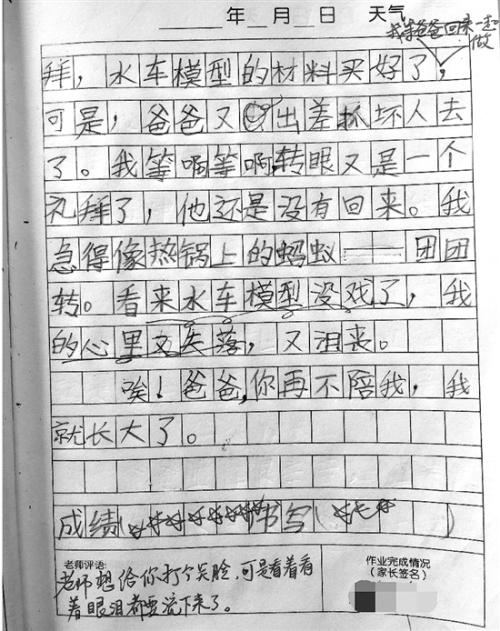 年 月 日 天气
我等爸爸回来一起做
拜，水车模型的材料买好了，
可是，爸爸又出差抓坏人去
了。我等啊等啊，转眼又是一个
礼拜了，他还是没有回来。我
急得像热锅上的蚂蚁——团团
转。看来水车模型没戏了，我
的心里又失落，又沮丧。
唉！爸爸，你再不陪我，我
就长大了。
成绩（☆☆☆☆☆书写（☆☆☆）
老师评语:
老师想给你打个笑脸，可是看着看
着眼泪都要流下来了。
作业完成情况
（家长签名）